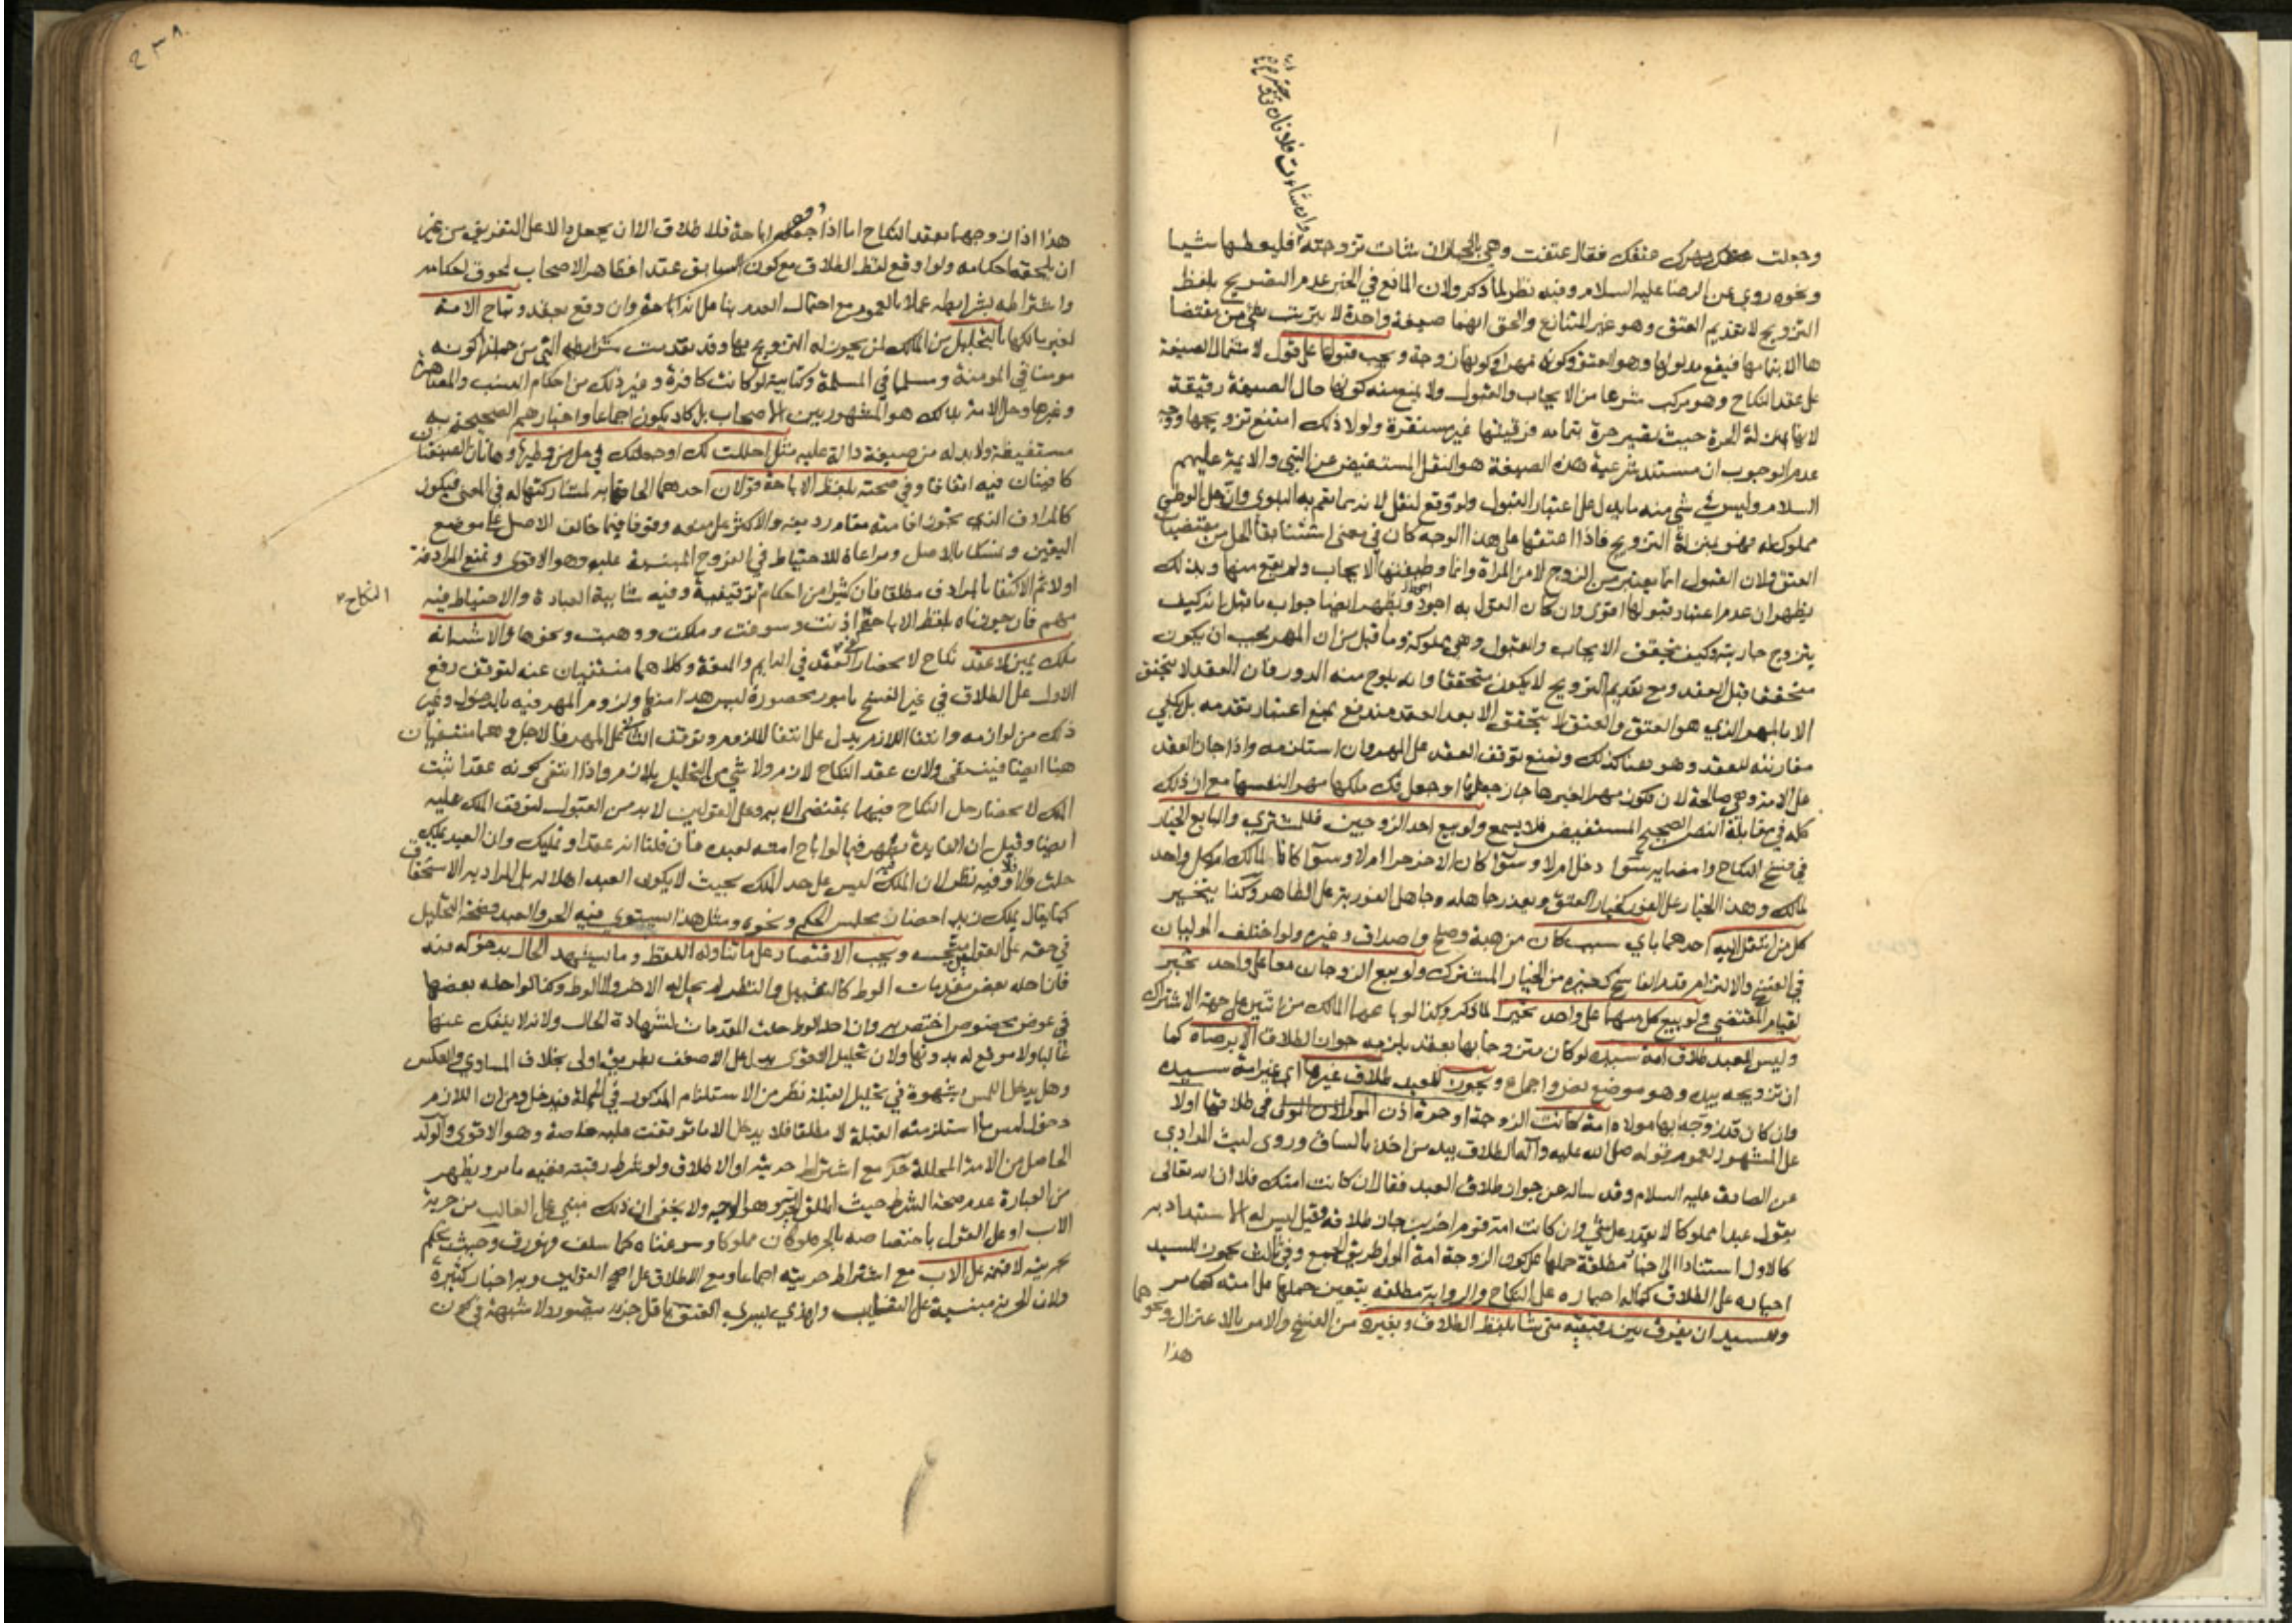 وان شاءت فلا فان
وجعلت مهرك عتقك فقال عتقت وهي بالخيار ان شاءت تزوجته فليعطها شيا
ونحوه روي عن الرضا عليه السلام وفيه نظر لما ذكر ولان المانع في الخبر عدم التصريح بلفظ
التزويج لا تقديم العتق وهو غير المتنازع والحق انهما صيغة واحدة لا يترتب شي من مقتضا
ها الا بتمامها فيقع مدلولها وهو العتق وكونه مهرا وكونها زوجة ويجب قبولها على قول لاشتمال الصيغة
على عقد النكاح وهو مركب شرعا من الايجاب والقبول ولا يمنع منه كونها حال الصيغة رقيقة
لانها بمنزلة الحرة حيث تصير حرة بتمامه فرقيتها غير مستقرة ولولا ذلك امتنع تزويجها ووجه
عدم الوجوب ان مستند شرعية هذه الصيغة هو النقل المستفيض عن النبي والايمة عليهم
السلام وليس في شي منه ما يدل على اعتبار القبول ولو وقع لنقل لانه مما تعم به البلوى وان حل الوطي
مملوك له فهو بمنزلة التزويج فاذا اعتقها على هذا الوجه كان في معنى استثنا بقا الحل من مقتضيات
العتق ولان القبول انما يعتبر من الزوج لا من المراة وانما وظيفتها الايجاب ولم يقع منها وبذلك
يظهر ان عدم اعتبار قبولها اقوى وان كان القول به اجود ويظهر ايضا جواب ما قيل انه كيف
يتزوج جاريته وكيف يتحقق الايجاب والقبول وهي مملوكة وما قيل من ان المهر يجب ان يكون
متحققا قبل العقد ومع تقديم التزويج لا يكون متحققا وانه يلوح منه الدور فان العقد لا يتحقق
الا بالمهر الذي هو العتق والعتق لا يتحقق الا بعد العقد مندفع بمنع اعتبار تقدمه بل يكفي
مقارنته للعقد وهو هنا كذلك ونمنع توقف العقد على المهر وان استلزمه واذا جاز العقد
على الامة وهي صالحة لان تكون مهرا لغيرها جاز جعلها او جعل فك ملكها مهرا لنفسها مع ان ذلك
كله في مقابلة النص الصحيح المستفيض فلا يسمع ولو بيع احد الزوجين فللمشتري والبايع الخيار
في فسخ النكاح وامضايه سوا دخل ام لا وسوا كان الاخر حرا ام لا وسوا كانا لمالك ام كل واحد
لمالك وهذا الخيار على الفور كخيار العتق ويعذر جاهله وجاهل الفورية على الظاهر وكذا يتخير
كل من انتقل اليه احدهما باي سبب كان من هبة وصلح واصداق وغيره ولو اختلف الموليان
في الفسخ والالتزام قدم الفاسخ كغيره من الخيار المشترك ولو بيع الزوجان معا على واحد تخير
لقيام المقتضي ولو بيع كل منهما على واحد تخيرا لما ذكر وكذا لو باعهما المالك من اثنين على جهة الاشتراك
وليس للعبد طلاق امة سيده لو كان متزوجا بها بعقد يلزمه جواز الطلاق الا برضاه كما
ان تزويجه بيده وهو موضع نص واجماع ويجوز للعبد طلاق غيرها اي غير امة سيده
وان كان قد زوجه بها مولاه امة كانت الزوجة او حرة اذن المولى في طلاقها او لا
على المشهور لعموم قوله صلى الله عليه وآله الطلاق بيد من اخذ بالساق وروى ليث المرادي
عن الصادق عليه السلام وقد ساله عن جواز طلاق العبد فقال ان كانت امتك فلا ان الله تعالى
يقول عبدا مملوكا لا يقدر على شي وان كانت امة قوم اخرين جاز طلاقه وقيل ليس له الاستبداد به
كالاول استنادا الى اخبار مطلقة حملها على كون الزوجة امة المولى طريق الجمع وفي ثالث يجوز للسيد
اجباره على الطلاق كما له اجباره على النكاح والرواية مطلقة يتعين حملها على امته كما مر
وللسيد ان يفرق بين رقيقيه متى شا بلفظ الطلاق وبغيره من الفسخ والامر بالاعتزال ونحوهما
هذا
٢٣٨
هذا اذا زوجهما بعقد النكاح اما اذا جعله اباحة فلا طلاق الا ان يجعل دالا على التفريق من غير
ان يلحقه احكامه ولو اوقع لفظ الطلاق مع كون السابق عقدا فظاهر الاصحاب لحوق احكامه
واشتراطه بشرايطه عملا بالعموم مع احتمال العدم بنا على انه اباحة وان وقع بعقد وتباح الامة
لغير مالكها بالتحليل من المالك لمن يجوز له التزويج بها وقد تقدمت شرايطه التي من جملتها كونه
مومنا في المومنة ومسلما في المسلمة وكتابية لو كانت كافرة وغير ذلك من احكام النسب والمصاهرة
وغيرها وحل الامة بذلك هو المشهور بين الاصحاب بل كاد يكون اجماعا واخبارهم الصحيحة به
مستفيضة ولا بد له من صيغة دالة عليه مثل احللت لك او جعلتك في حل من وطيها وهاتان الصيغتان
كافيتان فيه اتفاقا وفي صحته بلفظ الاباحة قولان احدهما الحاقها به لمشاركتها له في المعنى فيكون
كالمرادف الذي يجوز اقامته مقام رديفه والاكثر على منعه وقوفا فيما خالف الاصل على موضع
اليقين وتمسكا بالاصل ومراعاة للاحتياط في الفروج المبنية عليه وهو الاقوى ونمنع المرادفة
اولا ثم الاكتفا بالمرادف مطلقا فان كثيرا من احكام النكاح توقيفية وفيه شايبة العبادة والاحتياط فيه
مهم فان جوزناه بلفظ الاباحة كفى اذنت وسوغت وملكت ووهبت ونحوها والاشبه انه
ملك يمين لا عقد نكاح لانحصار العقد في الدايم والمتعة وكلاهما منتفيان عنه لتوقف رفع
الاول على الطلاق في غير الفسخ بامور محصورة ليس هذا منها ولزوم المهر فيه بالدخول وغير
ذلك من لوازمه وانتفا اللازم يدل على انتفا الملزوم وتوقف الثاني على المهر والاجل وهما منتفيان
هنا ايضا فينتفي ولان عقد النكاح لازم ولا شي من التحليل بلازم واذا انتفى كونه عقدا ثبت
الملك لانحصار حل النكاح فيهما بمقتضى الاية وعلى القولين لا بد من القبول لتوقف الملك عليه
ايضا وقيل ان الفايدة تظهر فيما لو اباح امته لعبده فان قلنا انه عقد او تمليك وان العبد يملك
حلت والا فلا وفيه نظر لان الملك فيه ليس على حد الملك بحيث لا يكون العبد اهلا له بل المراد به الاستحقاق
كما يقال يملك زيد احضار مجلس الحكم ونحوه ومثل هذا يستوي فيه الحر والعبد فصحة التحليل
في حقه على القولين متجه ويجب الاقتصار على ما تناوله اللفظ وما يشهد الحال بدخوله فيه
فان احله بعض مقدمات الوط كالتقبيل والنظر لم يحل له الاخر ولا الوط وكذا لو احله بعضها
في عوض مخصوص اختص به وان احل الوط حلت المقدمات لشهادة الحال ولانه لا ينفك عنها
غالبا ولا موقع له بدونها ولان تحليل الاقوى يدل على الاضعف بطريق اولى بخلاف المساوي والعكس
وهل يدخل اللمس بشهوة في تحليل القبلة نظر من الاستلزام المذكور في الجملة فيدخل ومن ان اللازم
دخول لمس ما استلزمته القبلة لا مطلقا فلا يدخل الا ما توقفت عليه خاصة وهو الاقوى والولد
الحاصل من الامة المحللة حر مع اشتراط حريته او الاطلاق ولو شرط رقيته ففيه ما مر ويظهر
من العبارة عدم صحة الشرط حيث اطلق الحرية وهو الوجه ولا يخفى ان ذلك مبني على الغالب من حرية
الاب او على القول باختصاصه بالحر فلو كان مملوكا وسوغناه كما سلف فهو رق وحيث يحكم
بحريته لا قيمة على الاب مع اشتراط حريته اجماعا ومع الاطلاق على اصح القولين وبه اخبار كثيرة
ولان الحرية مبنية على التغليب ولهذا يسري العتق باقل جزء يتصور ولا شبهة في كون
النكاح